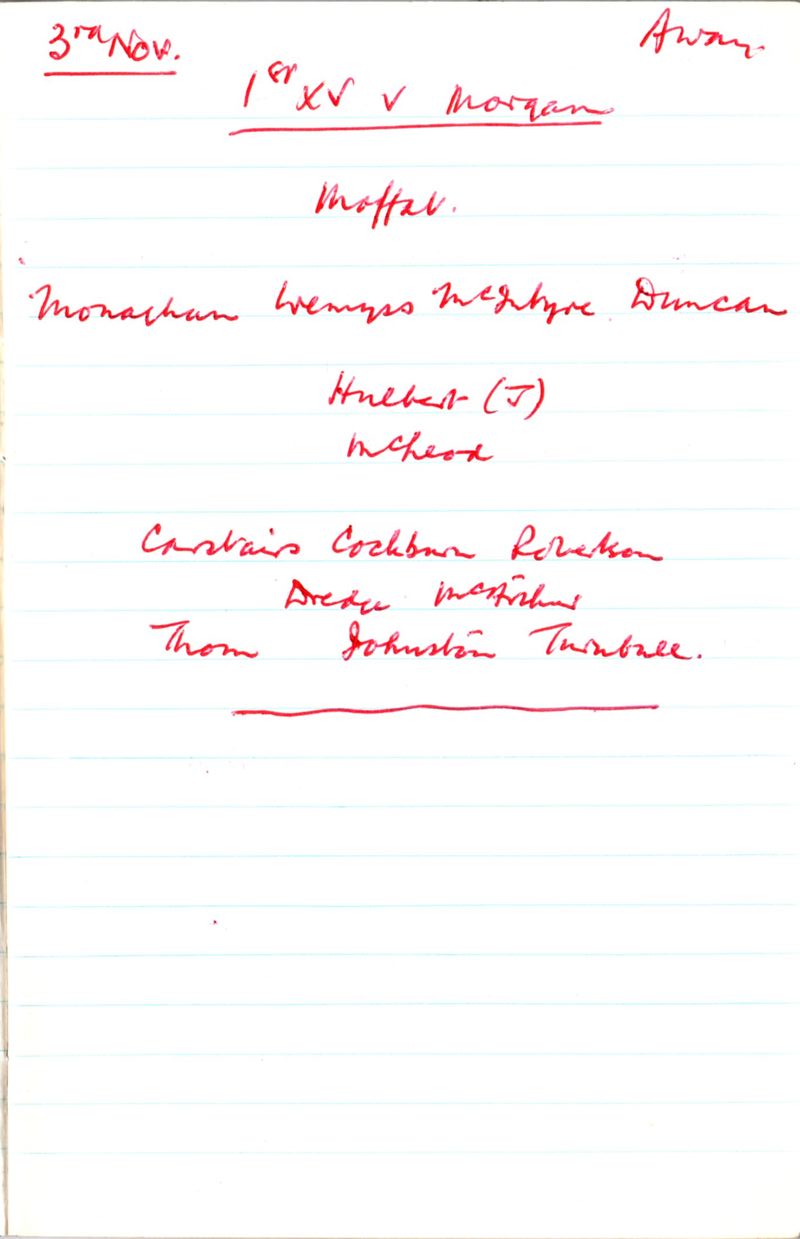 3rd Nov. Away
1st XV v Morgan
Moffat.
Monaghan Wemyss McIntyre Duncan
Hulbert (J)
McLeod
Carstairs Cockburn Robertson
Dredge McArthur
Thom Johnston Turnbull.